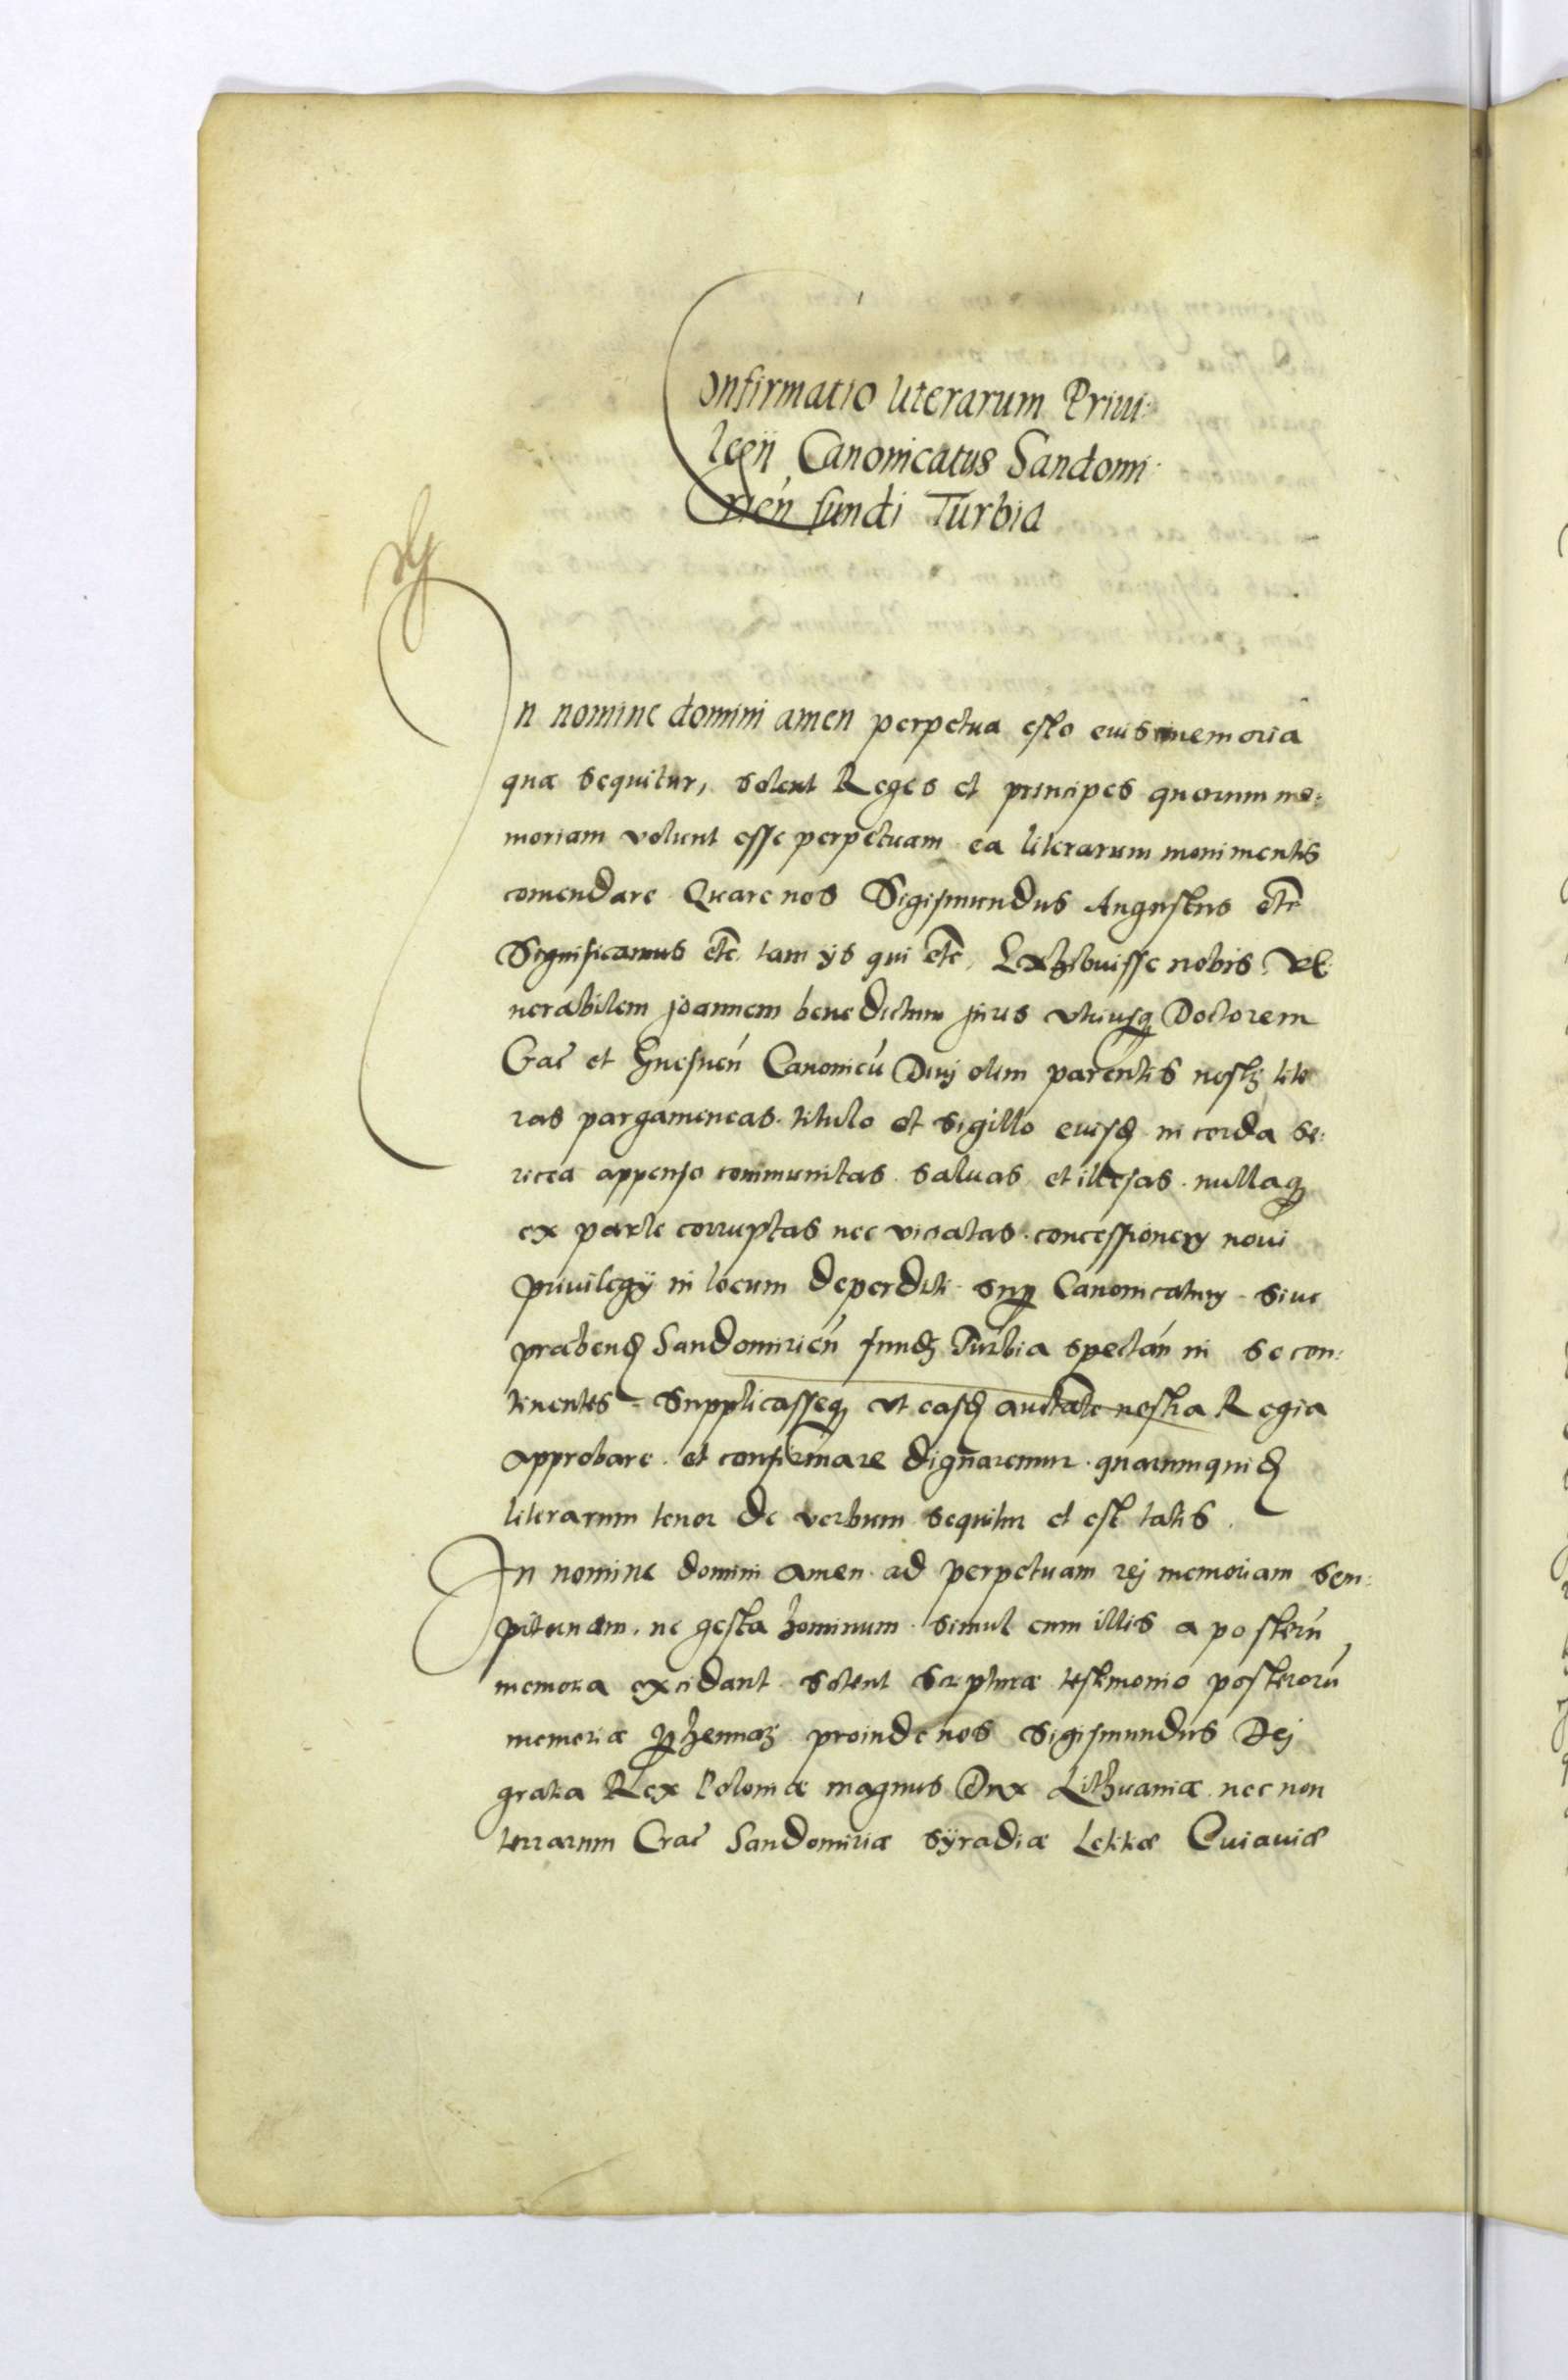 Confirmatio literarum Priui:
legÿ Canonicatus Sandomi:
rień fundi Turbia
In nomine domini amen perpetua esto eius memoria
quæ sequitur, solent Reges et principes quorum me:
moriam volunt esse perpetuam ea literarum monimentis
comendare Quare nos Sigismundus Augustus etc
Significamus etc tam ÿs qui etc, Exhibuisse nobis Ve:
nerabilem joannem benedictum juris vtriusq Doctorem
Crac et Gnesnen Canonicu Diuj olim parentis nostri lite
ras pargameneas titulo et sigillo eiusd in corda se:
ricea appenso communitas saluas et illesas nullaq
ex parte corruptas nec viciatas concessionem noui
priuilegÿ in locum deperditi sup Canonicatum siue
præbend Sandomirien fundi Turbia spectan in se con:
tinentes Supplicasseq vt easd auctate nostra Regia
approbare et confirmare dignaremur quarumquid
literarum tenor de verbum sequitur et est talis
In nomine domini amen ad perpetuam rej memoriam sem:
piternam, ne gesta hominum simul cum illis a posteru
memoria excidant solent scripturæ testimonio posteroru
memoriæ phennari proinde nos Sigismundus Dej
gratia Rex Poloniæ magnus Dux Lithuaniæ nec non
terrarum Crac Sandomiriæ sÿradiæ Lekkæ Cuiauiæ